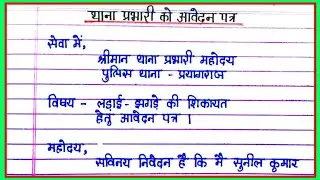 थाना प्रभारी को आवेदन पत्र
सेवा में,
श्रीमान थाना प्रभारी महोदय
पुलिस थाना - प्रयागराज
विषय - लड़ाई - झगड़े की शिकायत
हेतु आवेदन पत्र ।
महोदय,
सविनय निवेदन है कि मै सुनील कुमार